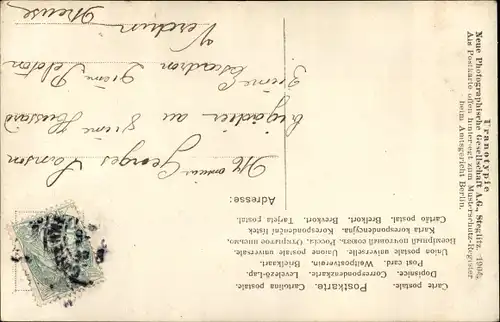 Carte postale. Postkarte. Cartolina postale.
Dopisnice. Correspondenzkarte. Levelező-Lap.
Post card. Weltpostverein. Briefkaart.
Union postale universelle. Unione postale universale.
Всемірный почтовый союзъ, Россія, Открытое письмо.
Karta korespondencyjna. Korespondenční lístek.
Cartão postal. Brefkort. Brevkort. Tarjeta postal.
Adresse:
Georges
Brigadier au Hussard
Escadron Peloton
Verdun
Meuse
Uranotypie
Neue Photographische Gesellschaft A.G., Steglitz. 1904.
Als Postkarte offen hinterlegt zum Musterschutz-Register
beim Amtsgericht Berlin.